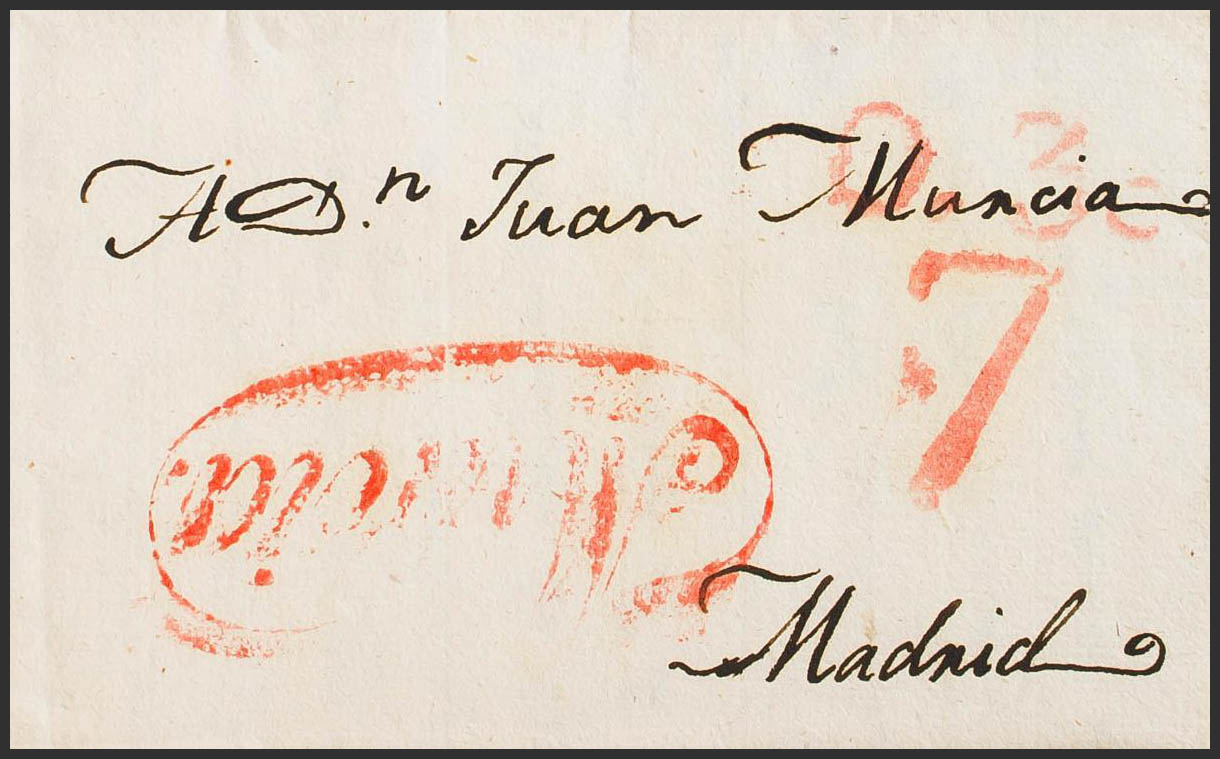 A D.n Juan Murcia
7
Murcia.
Madrid